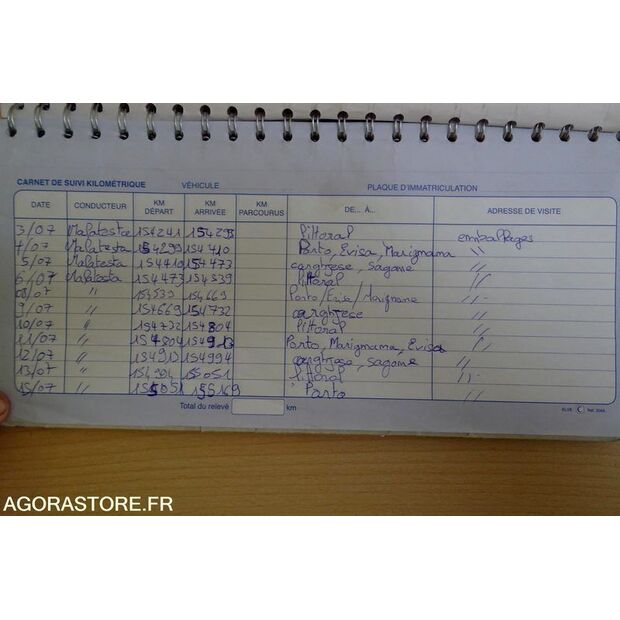 CARNET DE SUIVI KILOMÉTRIQUE VÉHICULE PLAQUE D'IMMATRICULATION
DATE CONDUCTEUR KM DÉPART KM ARRIVÉE KM PARCOURUS DE... A... ADRESSE DE VISITE
3/07 Malatesta 154241 154299 littoral emballages
4/07 Malatesta 154299 154410 Porto, Evisa, Marignana "
5/07 Malatesta 154410 154473 carghjese, Sagone "
6/07 Malatesta 154473 154539 littoral "
08/07 " 154539 154669 Porto/Evisa/Marignana "
9/07 " 154669 154732 carghjese "
10/07 " 154732 154804 littoral "
11/07 " 154804 154913 Porto, Marignana, Evisa "
12/07 " 154913 154994 carghjese, Sagone "
13/07 " 154994 155051 littoral "
15/07 " 155051 155169 Porto "
Total du relevé km
ELVE Réf.
AGORASTORE.FR